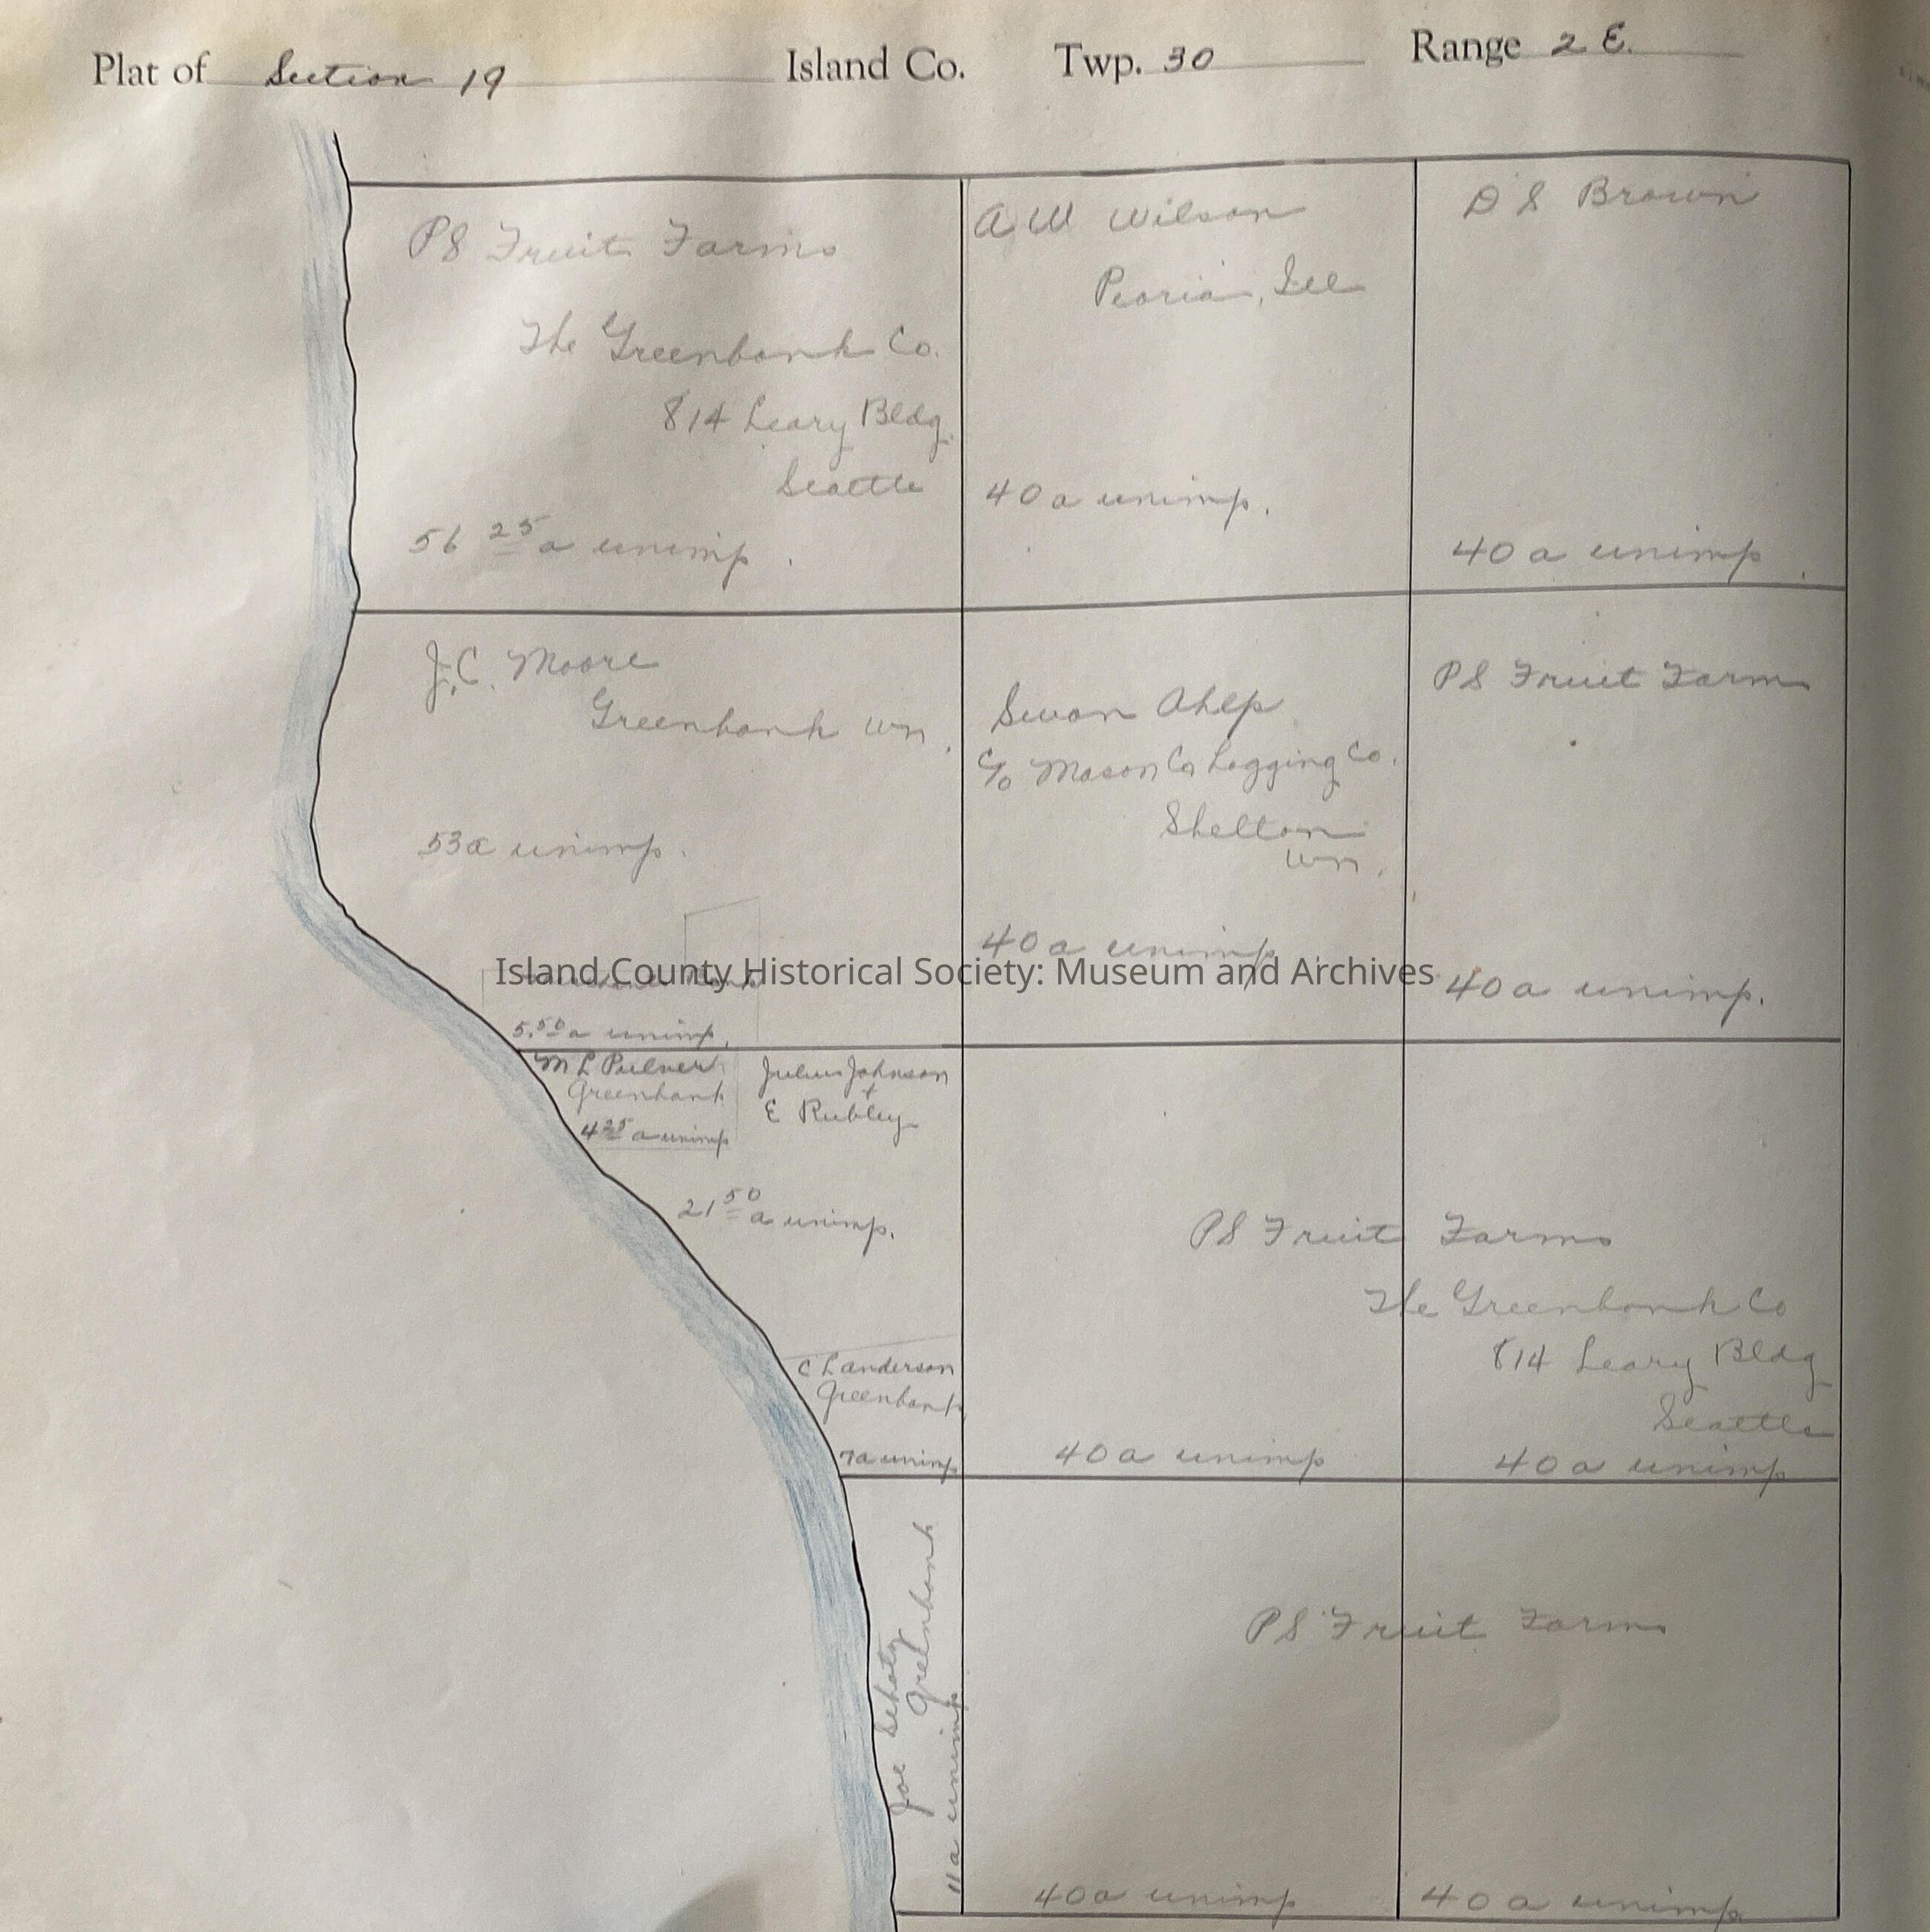 Plat of Section 19 Island Co. Twp. 30 Range 2 E.
PS Fruit Farms
The Greenbank Co.
814 Leary Bldg.
Seattle
56 25 a unimp.
A W Wilson
Peoria, Ill
40 a unimp.
D S Brown
40 a unimp.
J.C. Moore
Greenbank Wn.
53 a unimp.
5.50 a unimp.
Swan
c/o Mason Co Logging Co.
Shelton
Wn.
40 a unimp.
PS Fruit Farms
40 a unimp.
Island County Historical Society: Museum and Archives
M L Pulver
Greenbank
4 25 a unimp
Julius Johnson
+
E Rubley
21 50 a unimp.
C L Anderson
Greenbank
7 a unimp
PS Fruit Farms
The Greenbank Co
814 Leary Bldg
Seattle
40 a unimp
40 a unimp
Joe
Greenbank
11 a unimp
PS Fruit Farms
40 a unimp
40 a unimp